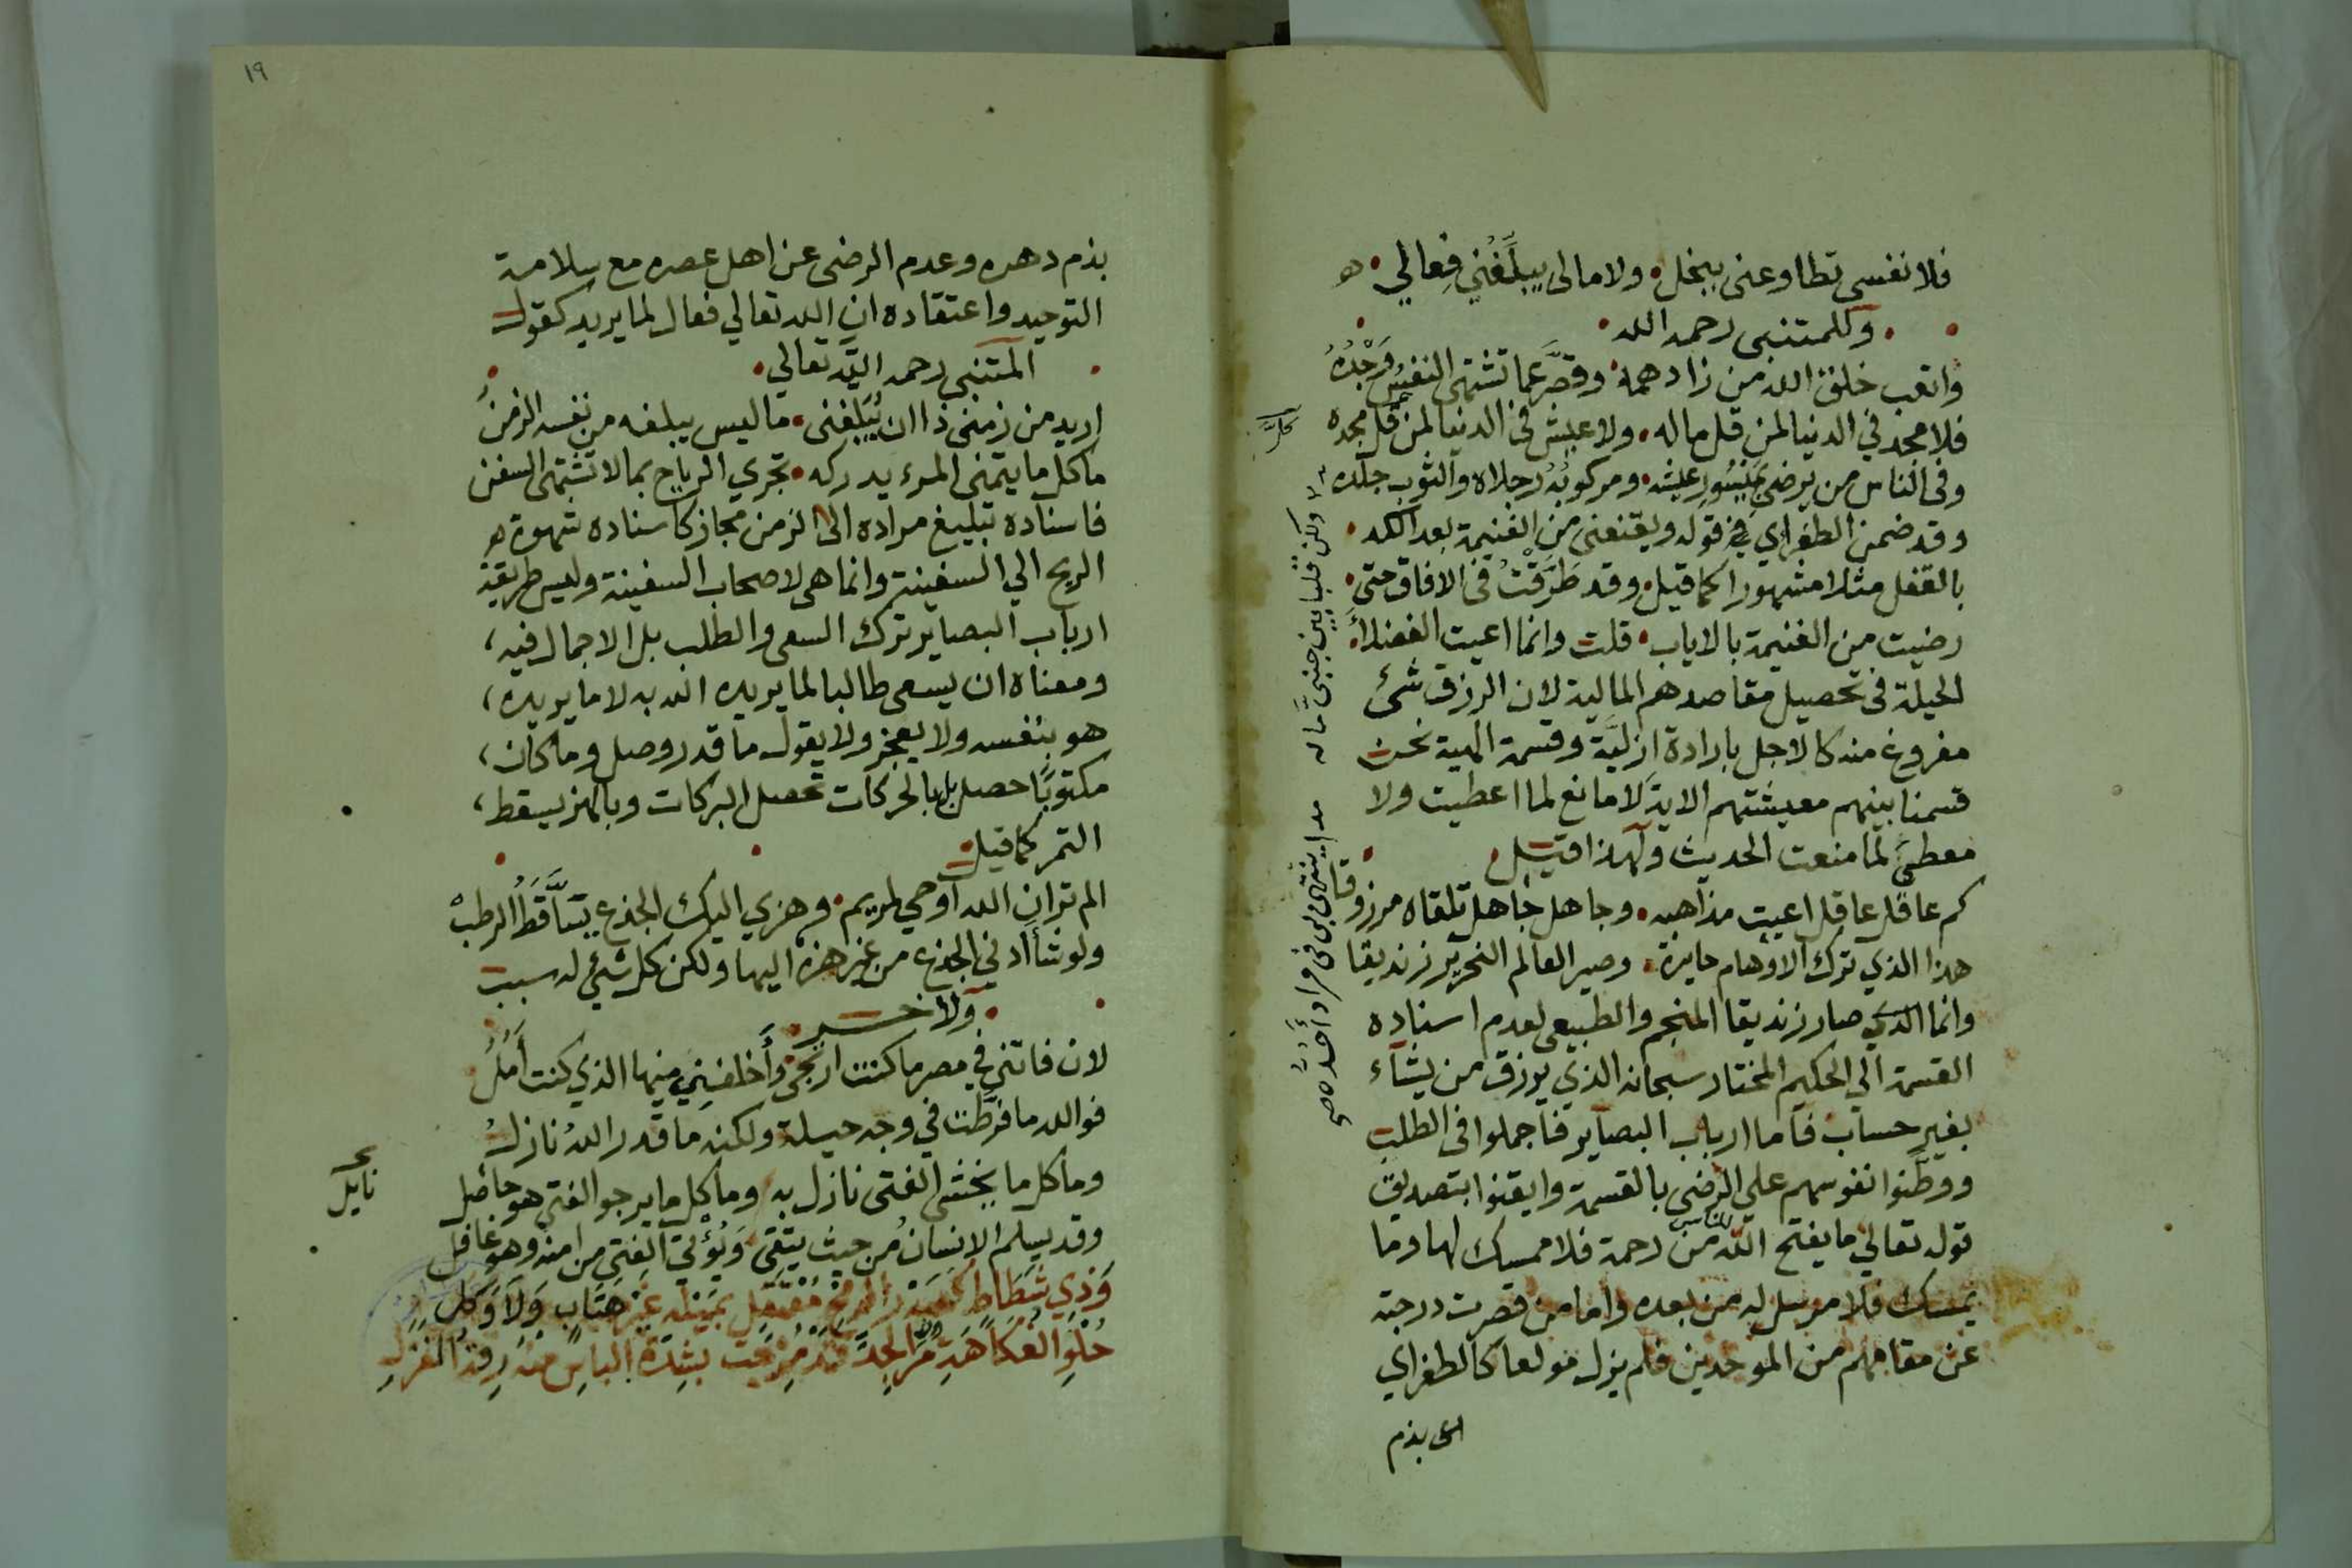 فلا نفسى تطاوعنى ببخل • ولا مالى يبلّغُني فِعالي • هو
• وللمتنبى رحمه الله •
واتعب خلق الله من زاد همه • وقصَّر عما تشتهى النفسُ وَجْدُهُ
فلا مجد في الدنيا لمن قل ماله • ولا عيش فى الدنيا لمن قل مجده
وفى الناس من يرضى بميسُورِ عيشه • ومركوبُهُ رجلاه والثوب جلده
وقد ضمن الطغراي في قوله ويقنعنى من الغنيمة بعد الكد •
بالقفل مثلا مشهورا كما قيل • وقد طَرَّفْتُ فى الافاق حتى •
رضيت من الغنيمة بالاياب • قلت وانما اعيت الفضلاءَ
الحيلة فى تحصيل مقاصدهم المالية لان الرزق شئ
مفروغ منه كالاجل بارادة ازليَّة وقسمة الهية نحن
قسمنا بينهم معيشتهم الاية لا مانع لما اعطيت ولا
معطىَ لما منعت الحديث ولهذا قيل •
كم عاقل عاقل اعيت مذاهبه • وجاهل جاهل تلقاه مرزوقا
هذا الذي ترك الاوهام حايرة • وصير العالم النحرير زنديقا
وانما الذي صار زنديقا المنجم والطبيعى لعدم اسناده
القسمة الي الحكيم المختار سبحانه الذي يرزق من يشآء
بغير حساب فاما ارباب البصاير فاجملوا فى الطلب
ووطَّنوا نفوسهم علي الرضى بالقسمة وايقنوا بتصديق
قوله تعالي ما يفتح الله للناس من رحمة فلا ممسك لها وما
يمسك فلا مرسل له من بعده واما من قصرت درجته
عن مقامهم من الموحدين فلم يزل مولعا كالطغراي
بذم
ولكن قلبا بين جنبىَّ ماله مدا ينتهى بى فى مراد أحُدُّه صح
١٩
بذم دهره وعدم الرضى عن اهل عصره مع سلامة
التوحيد واعتقاده ان الله تعالي فعال لما يريد كقول
• المتنبى رحمه الله تعالي •
اريد من زمنى ذا ان يُبَلِّغنى • ما ليس يبلغه من نفسه الزمنُ
ما كل ما يتمنى المرء يدركه • تجري الرياح بما لا تشتهى السفن
فاسناده تبليغ مراده الى الزمن مجاز كاسناده شهوة هو
الريح الي السفينة وانما هى لاصحاب السفينة وليس طريقة
ارباب البصاير ترك السعى والطلب بل الاجمال فيه،
ومعناه ان يسعى طالبا لما يريده الله به لا ما يريده،
هو بنفسه ولا يعجز ولا يقول ما قدر وصل وما كان،
مكتوبًا حصل بل بالحركات تحصل البركات وبالهز يسقط،
التمر كما قيل
الم تر ان الله اوحي لمريم • وهزي اليك الجذع يَسَّاقَطُ الرطبْ
ولو شآ ادني الجذع من غير هزه اليها ولكن كل شئ له سبب
• ولاخر •
لان فاتني في مصر ما كنت ارتجى وأَخلفنِي منها الذي كنت أَمُلُ
فوالله ما فرَّطت في وجه حيلة ولكنه ما قدر اللهُ نازلُ
وما كل ما يخشى الفتى نازل به وما كل ما يرجو الفتي هو حاصل
نايل
وقد يسلم الانسانُ من حيث يتقى وَيُؤْتى الفتى من امنه وهو غافل
وَذِي شَطَاطٍ كصَدْرِ الرمح مُعْتَقِلٍ بمثله غير هَيَّابٍ وَلَا وَكلِ
حُلْوِ الفُكَاهَةِ مُرِّ الجِدِّ قد مُزِجت بشِدَّة الباسِ منه رِقةُ الغزلِ